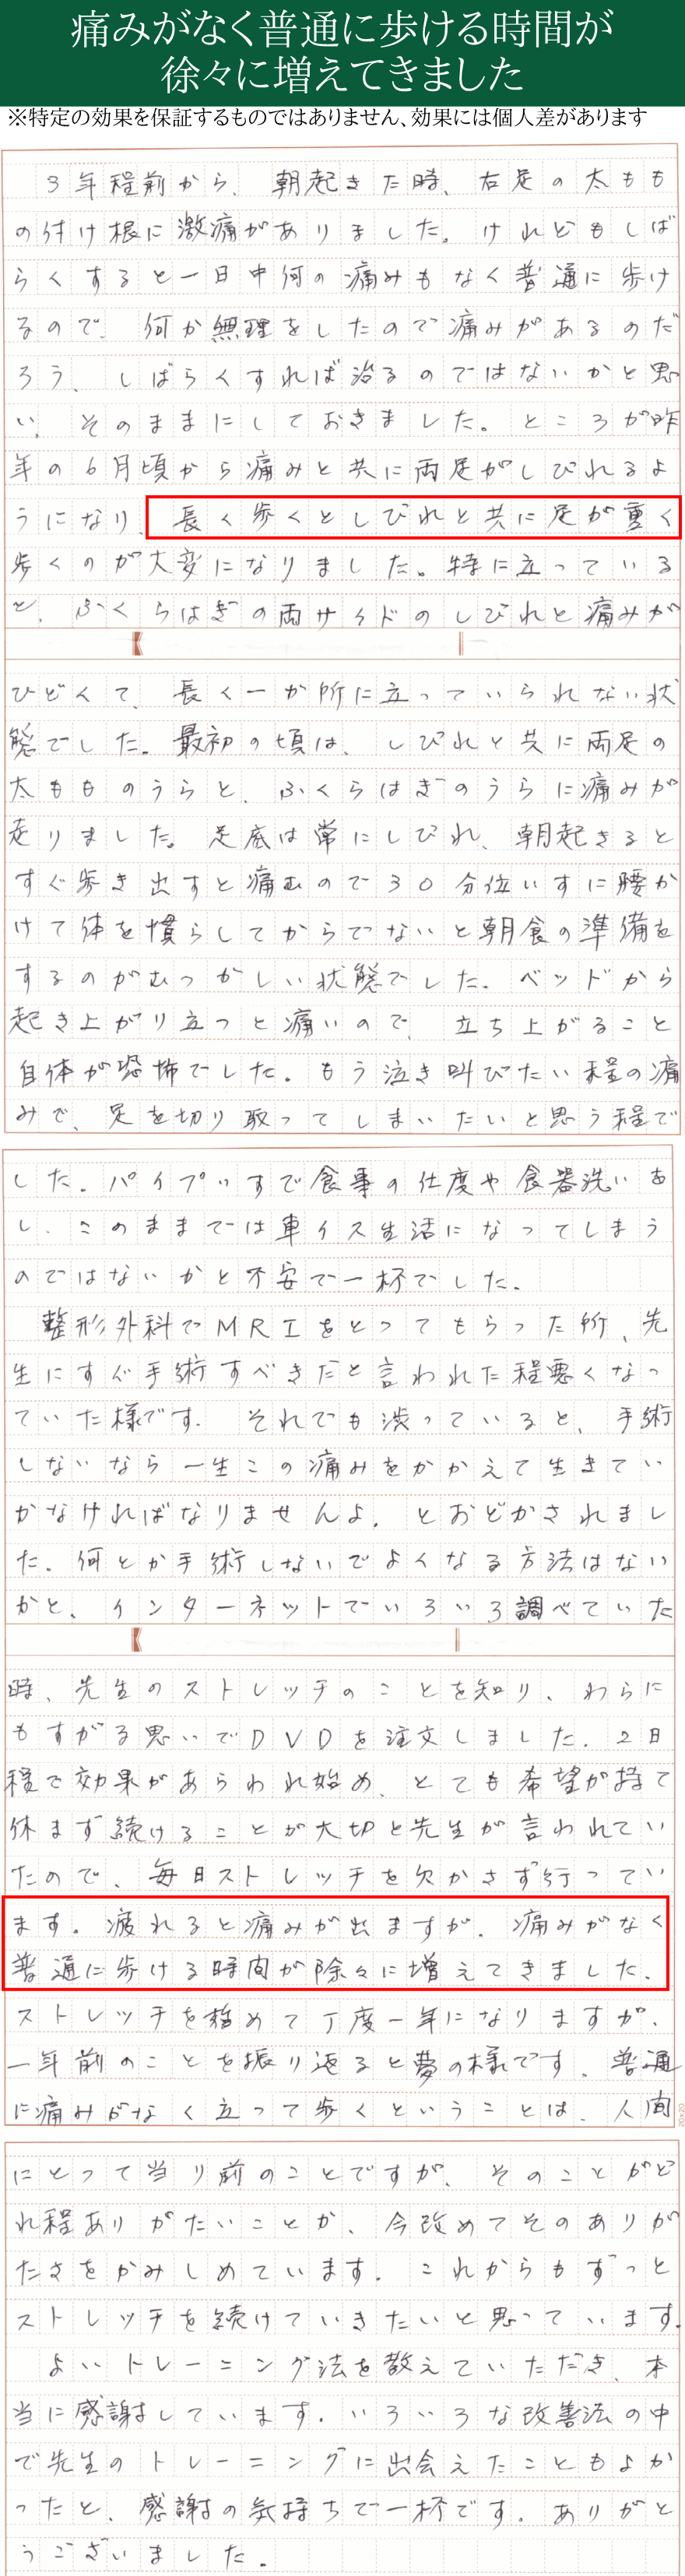 痛みがなく普通に歩ける時間が
徐々に増えてきました
※特定の効果を保証するものではありません、効果には個人差があります
3年程前から、朝起きた時、右足の太もも
の付け根に激痛がありました。けれどもしば
らくすると一日中何の痛みもなく普通に歩け
るので、何か無理をしたので痛みがあるのだ
ろう、しばらくすれば治るのではないかと思
い、そのままにしておきました。ところが昨
年の6月頃から痛みと共に両足がしびれるよ
うになり、長く歩くとしびれと共に足が重く
歩くのが大変になりました。特に立っている
と、ふくらはぎの両サイドのしびれと痛みが
ひどくて、長く一か所に立っていられない状
態でした。最初の頃は、しびれと共に両足の
太もものうらと、ふくらはぎのうらに痛みが
走りました。足底は常にしびれ、朝起きると
すぐ歩き出すと痛むので30分位いすに腰か
けて体を慣らしてからでないと朝食の準備を
するのがむつかしい状態でした。ベッドから
起き上がり立つと痛いので、立ち上がること
自体が恐怖でした。もう泣き叫びたい程の痛
みで、足を切り取ってしまいたいと思う程で
した。パイプいすで食事の仕度や食器洗いを
し、このままでは車イス生活になってしまう
のではないかと不安で一杯でした。
整形外科でMRIをとってもらった所、先
生にすぐ手術すべきだと言われた程悪くなっ
ていた様です。それでも渋っていると、手術
しないなら一生この痛みをかかえて生きてい
かなければなりませんよ。とおどかされまし
た。何とか手術しないでよくなる方法はない
かと、インターネットでいろいろ調べていた
時、先生のストレッチのことを知り、わらに
もすがる思いでDVDを注文しました。2日
程で効果があらわれ始め、とても希望が持て
休まず続けることが大切と先生が言われてい
たので、毎日ストレッチを欠かさず行ってい
ます。疲れると痛みが出ますが、痛みがなく
普通に歩ける時間が除々に増えてきました。
ストレッチを始めて丁度一年になりますが、
一年前のことを振り返ると夢の様です。普通
に痛みがなく立って歩くということは、人間
20×20
にとって当り前のことですが、そのことがど
れ程ありがたいことか、今改めてそのありが
たさをかみしめています。これからもずっと
ストレッチを続けていきたいと思っています。
よいトレーニング法を教えていただき、本
当に感謝しています。いろいろな改善法の中
で先生のトレーニングに出会えたこともよか
ったと、感謝の気持ちで一杯です。ありがと
うございました。